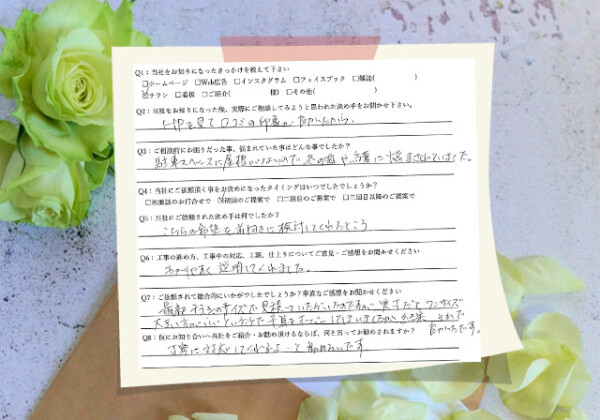 Q1：当社をお知りになったきっかけを教えて下さい
□ホームページ □Web広告 □インスタグラム □フェイスブック □雑誌( )
☑チラシ □看板 □ご紹介( 様) □その他( )
Q2：当社をお知りになった後、実際にご相談してみようと思われた決め手をお聞かせ下さい。
HPを見て口コミの印象が良かったから。
Q3：ご相談前にお困りだった事、悩まれていた事はどんな事でしたか？
駐車スペースに屋根がないので、冬の霜や雪に悩まされていました。
Q4：当社にご依頼頂く事をお決めになったタイミングはいつでしたでしょうか？
□初面談のお打合せで ☑初回のご提案で □二回目のご提案で □三回目以降のご提案で
Q5：当社にご依頼された決め手は何でしたか？
こちらの希望を前向きに検討してくれたところ
Q6：工事の進め方、工事中の対応、工期、仕上りについてご意見・ご感想をお聞かせください
わかりやすく説明してくれました。
Q7：ご依頼されて総合的にいかがでしたでしょうか？率直なご感想をお聞かせください
最初 のサイズで見積っていただいたのですが、 だとワンサイズ
大きい方がいいということで予算をオーバーしてしまいましたが、結果、それで
良かったです。
Q8：仮にお知り合いへ当社をご紹介・お勧め頂けるならば、何と言ってお勧めされますか？
丁寧に対応してくれるよ と勧めたいです